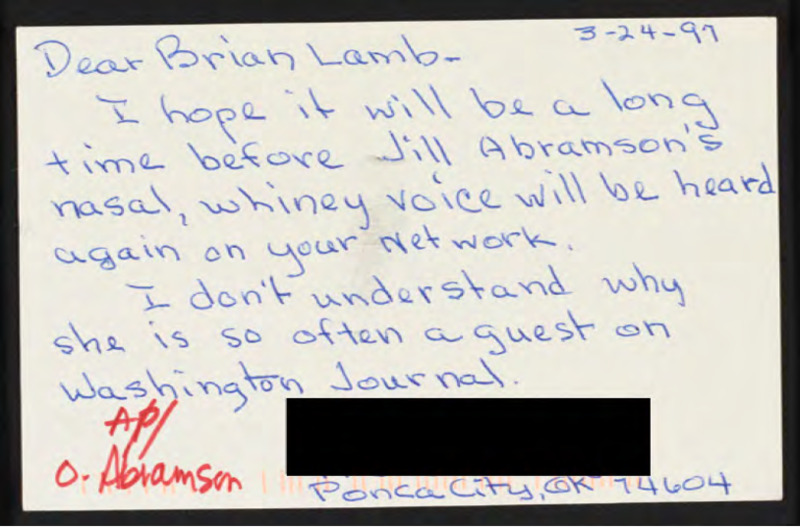 3-24-97
Dear Brian Lamb-
I hope it will be a long
time before Jill Abramson's
nasal, whiney voice will be heard
again on your Network.
I don't understand why
she is so often a guest on
Washington Journal.
AP/
O. Abramson
Ponca City, OK 74604